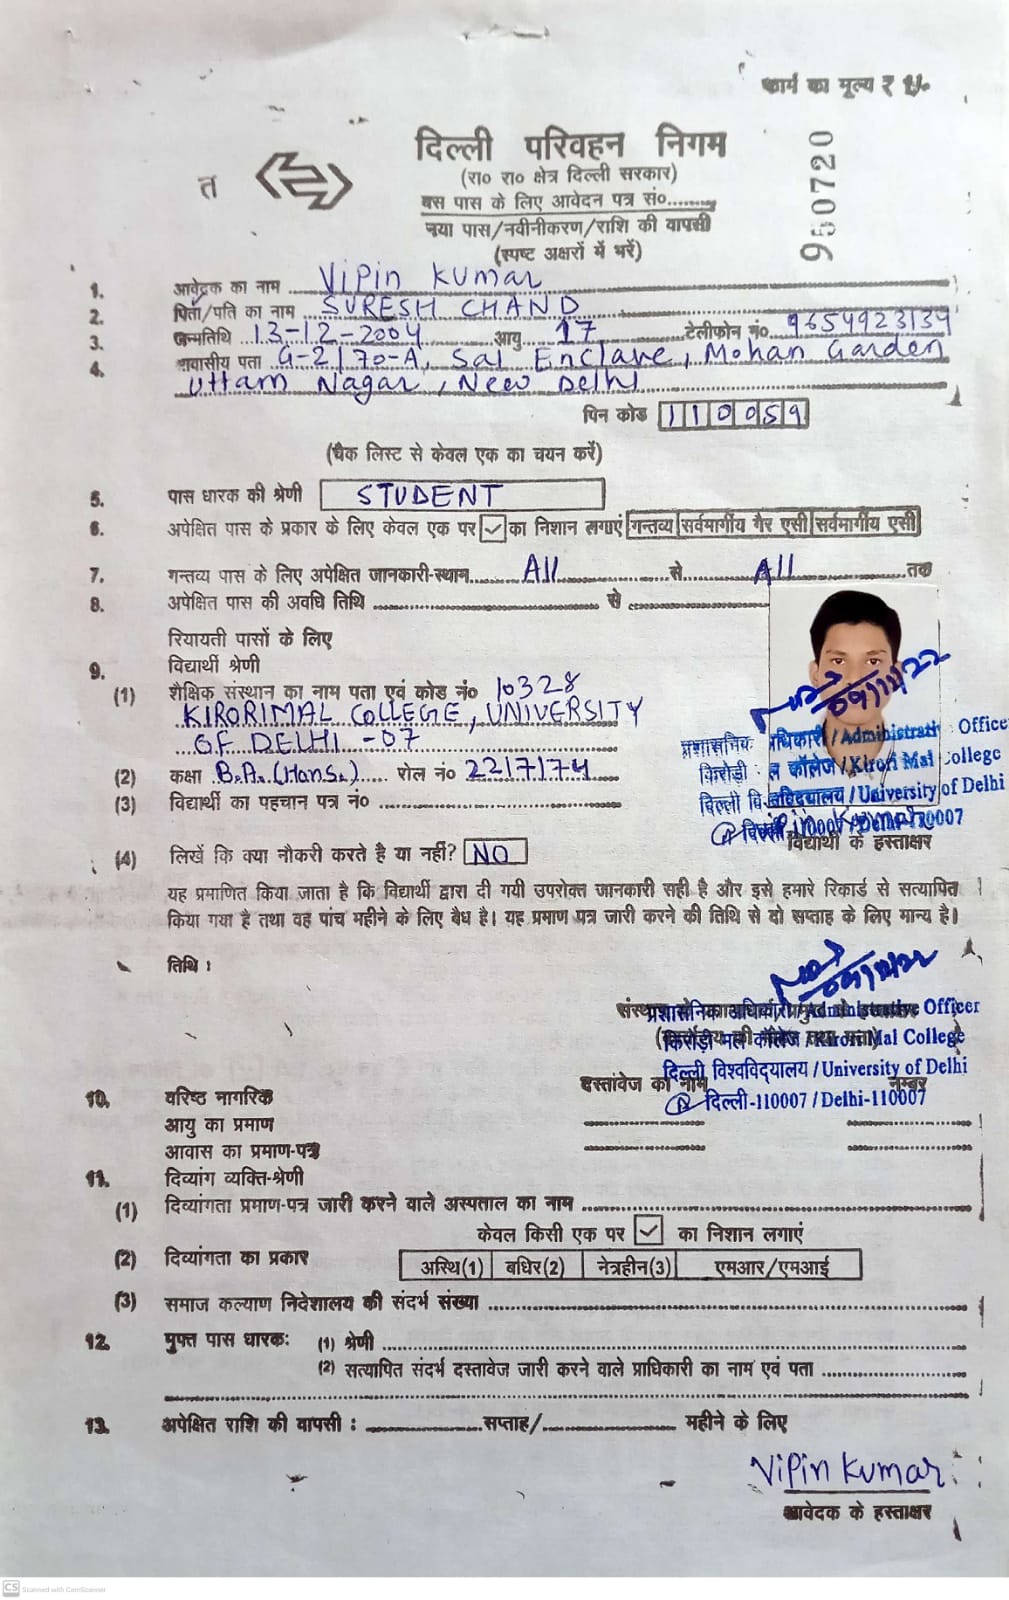 फार्म का मूल्य ₹ 1/-
950720
त
दिल्ली परिवहन निगम
(रा० रा० क्षेत्र दिल्ली सरकार)
बस पास के लिए आवेदन पत्र सं०.........
नया पास/नवीनीकरण/राशि की वापसी
(स्पष्ट अक्षरों में भरें)
1. आवेदक का नाम Vipin Kumar
2. पिता/पति का नाम SURESH CHAND
3. जन्मतिथि 13-12-2004 आयु 17 टेलीफोन नं० 9654923134
4. वासीय पता G-2/70-A, Sai Enclave, Mohan Garden
Uttam Nagar, New Delhi
पिन कोड 110059
(चैक लिस्ट से केवल एक का चयन करें)
5. पास धारक की श्रेणी STUDENT
6. अपेक्षित पास के प्रकार के लिए केवल एक पर ✓ का निशान लगाएं गन्तव्य सर्वमार्गीय गैर एसी सर्वमार्गीय एसी
7. गन्तव्य पास के लिए अपेक्षित जानकारी-स्थान All से All तक
8. अपेक्षित पास की अवधि तिथि से
रियायती पासों के लिए
9. विद्यार्थी श्रेणी
(1) शैक्षिक संस्थान का नाम पता एवं कोड नं० 10328
KIRORIMAL COLLEGE, UNIVERSITY
OF DELHI -07
(2) कक्षा B.A. (Hons.) रोल नं० 2217174
(3) विद्यार्थी का पहचान पत्र नं०
प्रशासनिक अधिकारी / Administrative Office
किरोड़ी मल कॉलेज / Kirori Mal College
दिल्ली विश्वविद्यालय / University of Delhi
दिल्ली-110007 / Delhi-110007
Vipin Kumar
विद्यार्थी के हस्ताक्षर
(4) लिखें कि क्या नौकरी करते है या नहीं? NO
यह प्रमाणित किया जाता है कि विद्यार्थी द्वारा दी गयी उपरोक्त जानकारी सही है और इसे हमारे रिकार्ड से सत्यापित
किया गया है तथा वह पांच महीने के लिए बैध है। यह प्रमाण पत्र जारी करने की तिथि से दो सप्ताह के लिए मान्य है।
तिथि :
प्रशासनिक अधिकारी / Administrative Officer
किरोड़ी मल कॉलेज / Kirori Mal College
दिल्ली विश्वविद्यालय / University of Delhi
दिल्ली-110007 / Delhi-110007
दस्तावेज का नाम नम्बर
10. वरिष्ठ नागरिक
आयु का प्रमाण
आवास का प्रमाण-पत्र
11. दिव्यांग व्यक्ति-श्रेणी
(1) दिव्यांगता प्रमाण-पत्र जारी करने वाले अस्पताल का नाम
केवल किसी एक पर ✓ का निशान लगाएं
(2) दिव्यांगता का प्रकार अस्थि(1) बधिर(2) नेत्रहीन(3) एमआर/एमआई
(3) समाज कल्याण निदेशालय की संदर्भ संख्या
12. मुफ्त पास धारकः (1) श्रेणी
(2) सत्यापित संदर्भ दस्तावेज जारी करने वाले प्राधिकारी का नाम एवं पता
13. अपेक्षित राशि की वापसी : सप्ताह/ महीने के लिए
Vipin Kumar
आवेदक के हस्ताक्षर
CS Scanned with CamScanner